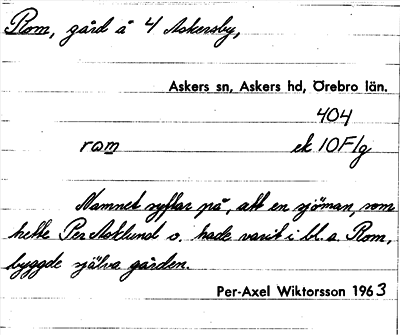 Rom, gård å 4 Askersby,
Askers sn, Askers hd, Örebro län.
404
rom ek 10F1g
Namnet syftar på, att en sjöman, som
hette Per Asklund o. hade varit i bl. a. Rom,
byggde själva gården.
Per-Axel Wiktorsson 1963